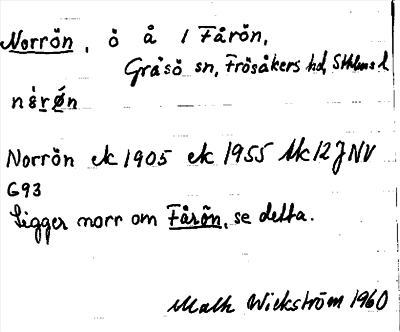 Norrön, ö å 1 Fårön,
Gräsö sn, Frösåkers hd, Sthlms l
nèrǿn
Norrön ek 1905 ek 1955 Mk 12J NV
G93
Ligger norr om Fårön, se detta.
Math Wickström 1960